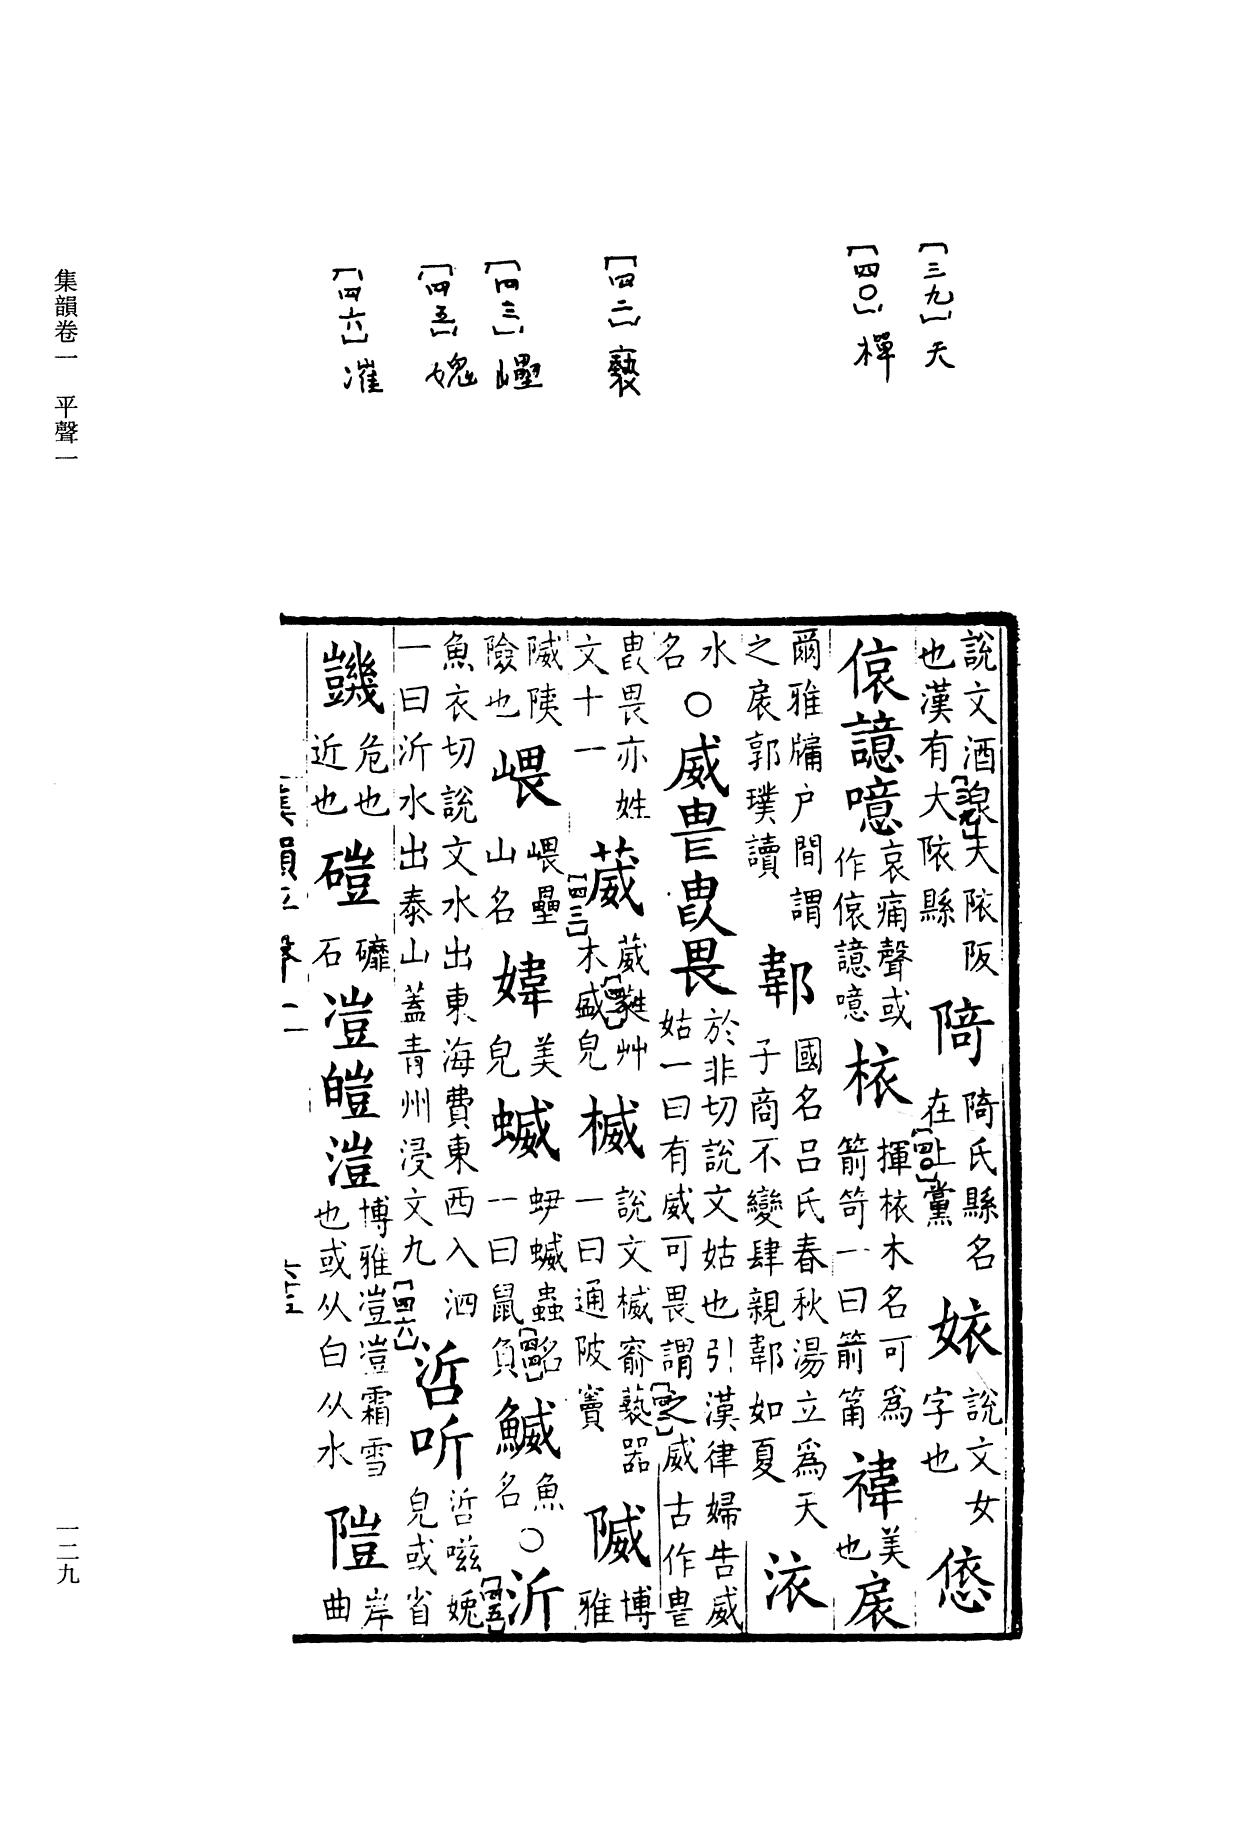 [三九]天
[四〇]樿
[四二]褻
[四三]㠥
[四五]媿
[四六]凗
說文酒泉[三九]天陊阪
也漢有大陊縣
陭陭氏縣名
在上黨
㛄說文女
字也
㥋
偯譩噫哀痛聲或
作偯譩噫
㭂楎㭂木名可爲[四〇]
箭笴一曰箭筩
禕美
也
扆
爾雅牖戶間謂
之扆郭璞讀
郼國名吕氏春秋湯立爲天
子商不變肆親郼如夏
㳖
水
名
〇威畏於非切說文姑也引漢律婦告威
姑一曰有威可畏謂之威古作
畏亦姓
文十一
葳葳蕤艸
木盛皃[四三]
楲說文楲窬褻器[四二]
一曰通陂竇
隇博
雅
隇陕
險也
崣壘
山名
媁美
皃
蝛蛜蝛蟲名
一曰鼠負
鰄魚
名
〇沂
魚衣切說文水出東海費東西入泗
一曰沂水出泰山蓋青州浸文九[四六]
㖾听㖾嗞媿[四五]
皃或省
䜟危也
近也
磑䃺
石
凒皚溰博雅凒凒霜雪
也或从白从水
隑岸
曲
集韻平聲一
六十三
集韻卷一　平聲一
一二九